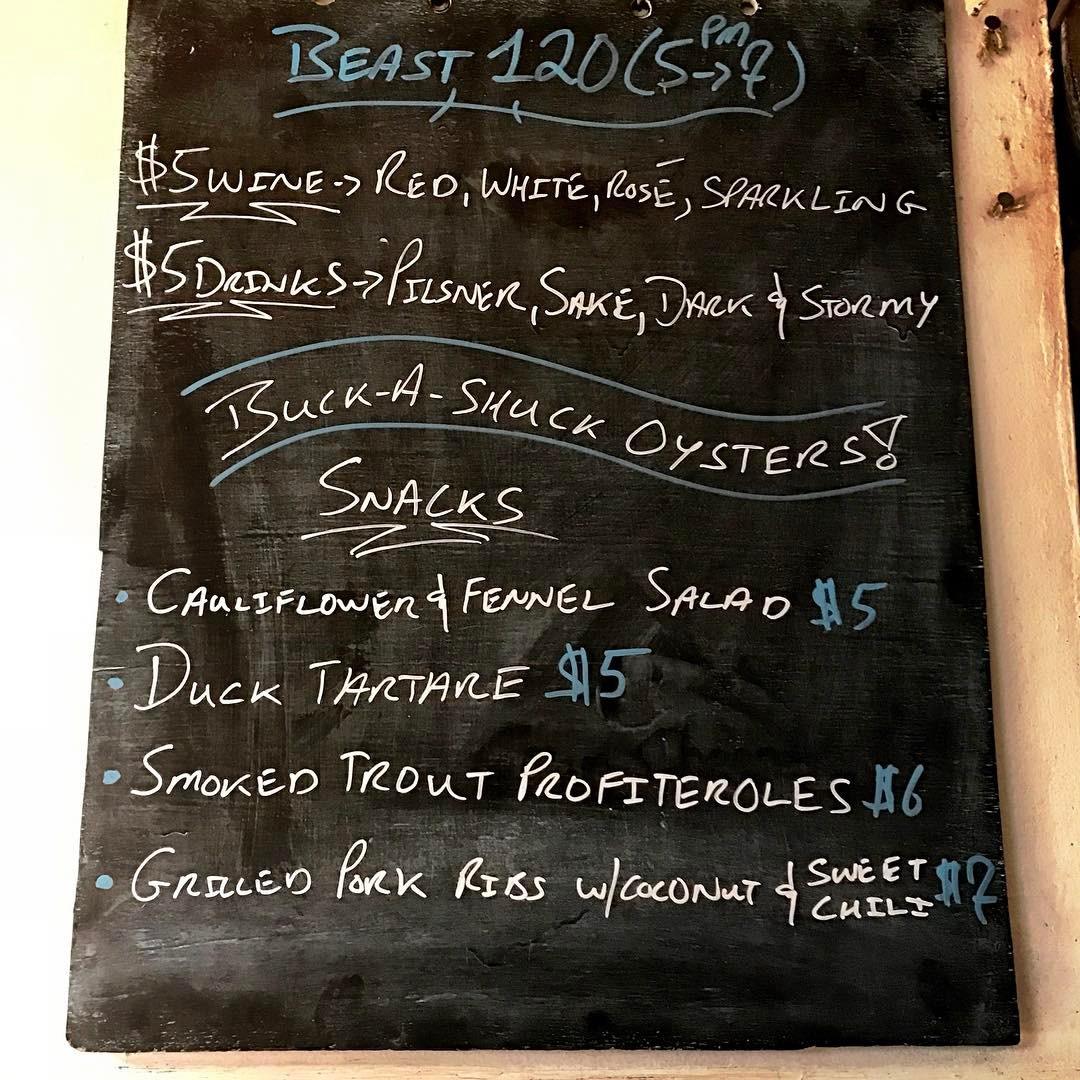 BEAST 120 (5 PM → 7)
$5 WINE → RED, WHITE, ROSÉ, SPARKLING
$5 DRINKS → PILSNER, SAKE, DARK & STORMY
BUCK-A-SHUCK OYSTERS!
SNACKS
• CAULIFLOWER & FENNEL SALAD $5
• DUCK TARTARE $5
• SMOKED TROUT PROFITEROLES $6
• GRILLED PORK RIBS W/COCONUT & SWEET CHILI $7